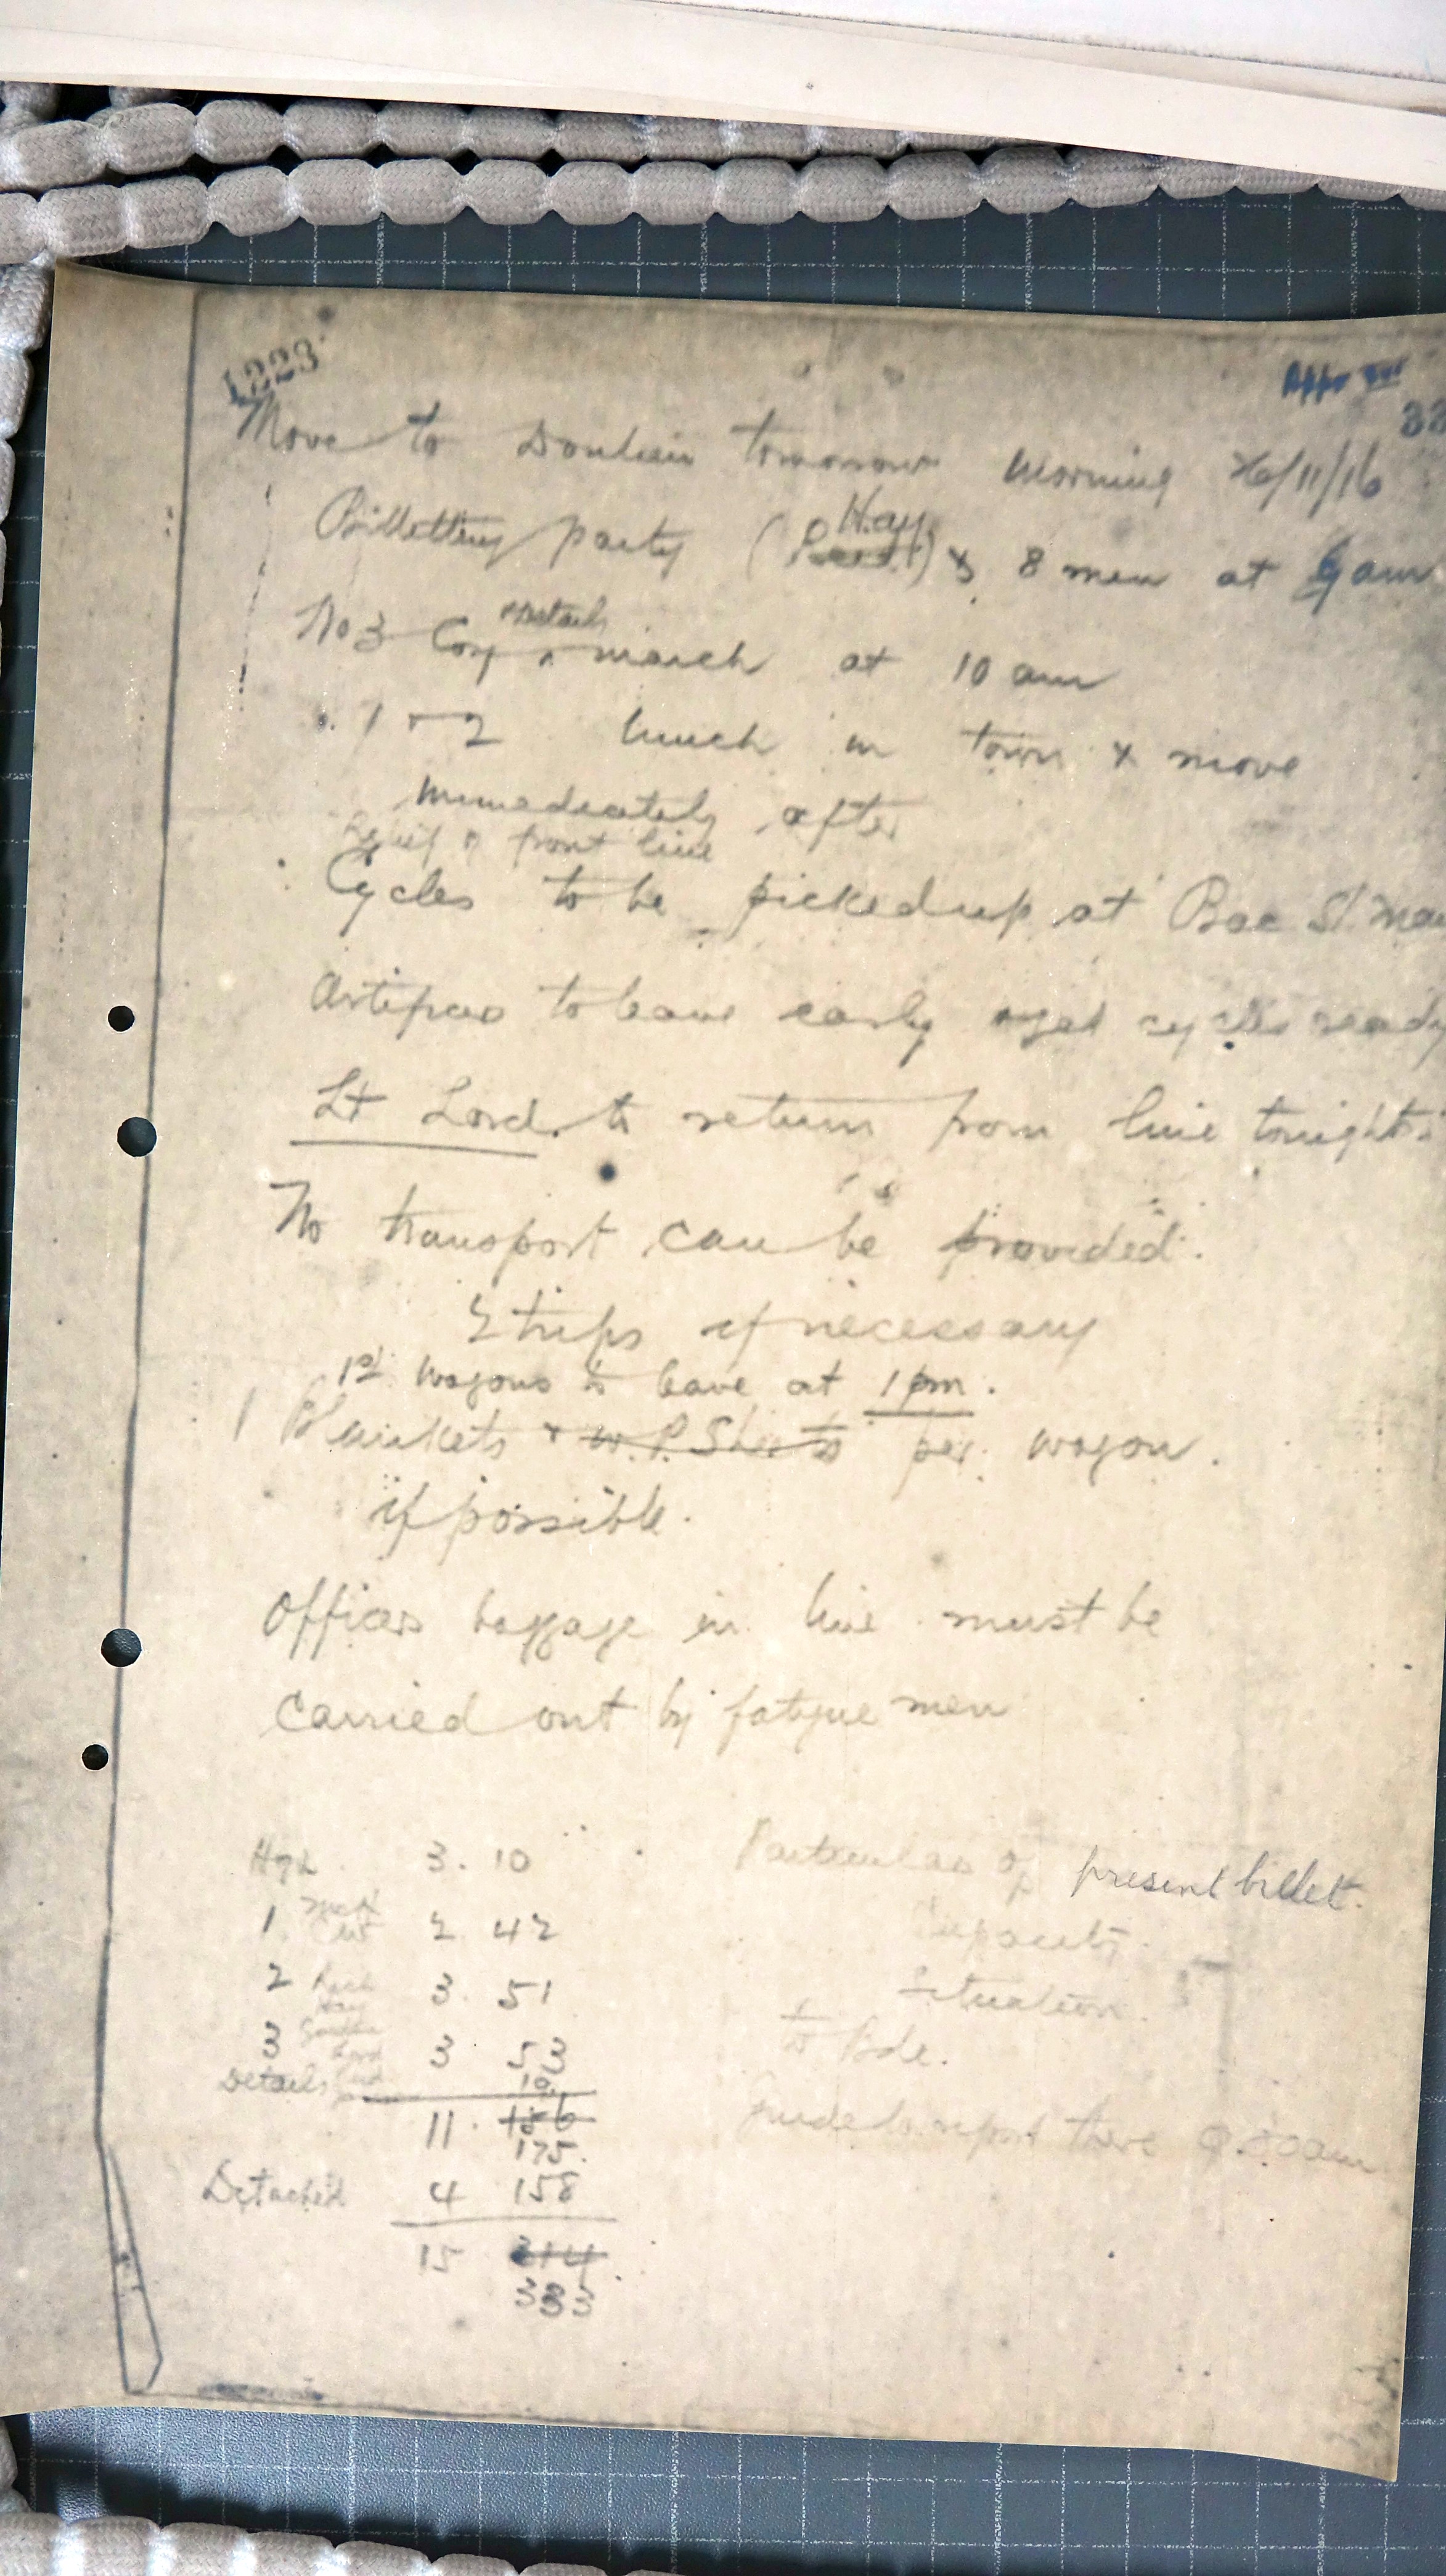 1223
33
Move to Doulieu tomorrow morning 26/11/16
Billetting party ( Hay ) & 8 men at 9 am
No 3 Coy & Details march at 10 am
1 & 2 lunch in town & move
immediately after
Relief of front line
Cycles to be picked up at Bac St. Mau
Artificer to leave early & get cycles ready
Lt Lord to return from line tonight.
No transport can be provided.
2 trips if necessary
1st wagons to leave at 1 pm.
1 Blankets & W.P. Sheets per wagon.
if possible.
Officers baggage in line must be
carried out by fatigue men
Hqr 3. 10 Particulars of present billet.
1 2 42 Capacity.
2 3. 51 Situation.
3 3 53 to Bde.
Details 19
11. 156 Guide to report there 9.30am
175.
Detached 4 158
15 314
333